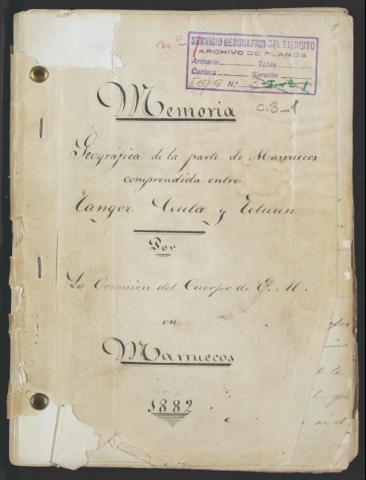 nº 1
SERVICIO GEOGRAFICO DEL EJERCITO
ARCHIVO DE PLANOS
Armario Tabla
Cartera Sección
Nº
C.3-1
Memoria
Geográfica de la parte de Marruecos
comprendida entre
Tanger Ceuta y Tetuan
Por
La Comisión del Cuerpo de E. M.
en
Marruecos
1882